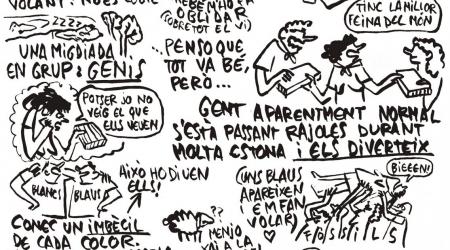 VOLANT: NOÉS
ZZZZ
UNA MIGDIADA
EN GRUP: GENIS
REBEM HO A
OBLIDAR
(SOBRETOT EL VI)
...PENSO QUE
TOT VA BÉ,
PERÒ...
TINC LA MILLOR
FEINA DEL MÓN
POTSER JO NO
VEIG EL QUE
ELLS VEUEN
GENT APARENTMENT NORMAL
S'ESTÀ PASSANT RAJOLES DURANT
MOLTA ESTONA I ELS DIVERTEIX
AIXÒ HO DIUEN
ELLS!
BLANCS
BLAUS
CONEC UN IMBECIL
DE CADA COLOR.
??
MENJO
(UNS BLAUS
APAREIXEN
EM FAN
VOLAR)
BIEEEN!
FOSSILS